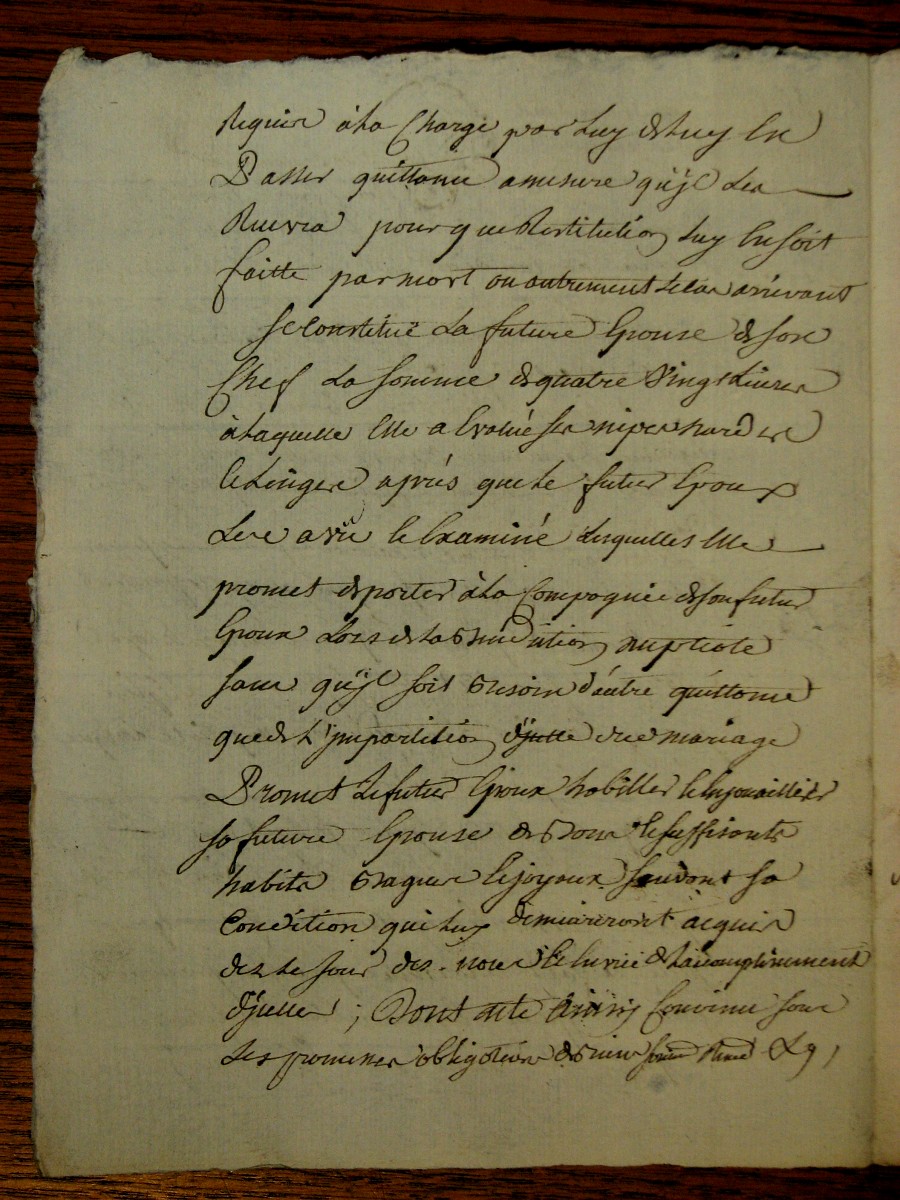 Requise à la Charge par Luy de luy En
Passer quittance a mesure qu'jl Les
Recevra pour que Restitution Luy En soit
faitte par mort ou autrement Le cas arrivant
se Constitue La future Epouse de son
Chef La somme de quatre Vingt Livres
à laquelle Elle a Evalué ses nipes hardes
et Linges après que le futur Epoux
Les a vu et Examiné Lesquelles Elle
promet de porter à la Compagnie de son futur
Epoux Lors de la Benediction nuptiale
sans qu'jl soit Besoin d'autre quittance
que de L'jmpartition d'jcelle dud mariage
Promet Le futur Epoux habiller et Enjouailler
sa future Epouse de Bons et suffisants
habits Bagues et joyaux suivant sa
Condition qui luy demeureront acquis
dez le jour des noces et en vue de L'accomplissement
d'jcelles ; Dont acte Ainsi Convenu sous
Les promesses obligations de